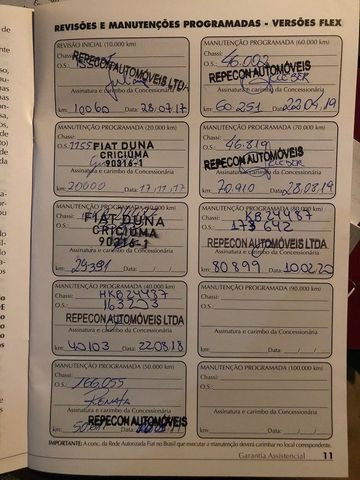 REVISÕES E MANUTENÇÕES PROGRAMADAS - VERSÕES FLEX
REVISÃO INICIAL (10.000 km)
Chassi:
O.S.:
REPECON AUTOMÓVEIS LTDA
Assinatura e carimbo da Concessionária
km: 10060 Data: 28/07/17
MANUTENÇÃO PROGRAMADA (20.000 km)
Chassi:
O.S.:
FIAT DUNA
CRICIÚMA
90316-1
Assinatura e carimbo da Concessionária
km: 20000 Data: 17/11/17
MANUTENÇÃO PROGRAMADA (30.000 km)
Chassi:
FIAT DUNA
CRICIÚMA
90316-1
Assinatura e carimbo da Concessionária
km: 29391 Data:
MANUTENÇÃO PROGRAMADA (40.000 km)
Chassi: HKB24487
O.S.: 163203
REPECON AUTOMÓVEIS LTDA
Assinatura e carimbo da Concessionária
km: 40103 Data: 22/08/18
MANUTENÇÃO PROGRAMADA (50.000 km)
Chassi:
O.S.: 166.055
RENATA
Assinatura e carimbo da Concessionária
REPECON AUTOMÓVEIS
km: Data:
MANUTENÇÃO PROGRAMADA (60.000 km)
Chassi:
O.S.: 46.002
REPECON AUTOMÓVEIS
KLEBER
Assinatura e carimbo da Concessionária
km: 60.251 Data: 22/04/19
MANUTENÇÃO PROGRAMADA (70.000 km)
Chassi:
O.S.: 46.819
REPECON AUTOMÓVEIS
KLEBER
Assinatura e carimbo da Concessionária
km: 70.910 Data: 28/08/19
MANUTENÇÃO PROGRAMADA (80.000 km)
Chassi: KB24487
O.S.: 173642
REPECON AUTOMÓVEIS LTDA
Assinatura e carimbo da Concessionária
km: 80899 Data: 10/02/20
MANUTENÇÃO PROGRAMADA (90.000 km)
Chassi:
O.S.:
Assinatura e carimbo da Concessionária
km: Data: / /
MANUTENÇÃO PROGRAMADA (100.000 km)
Chassi:
O.S.:
Assinatura e carimbo da Concessionária
km: Data: / /
IMPORTANTE: A conc. da Rede Autorizada Fiat no Brasil que executar a manutenção deverá carimbar no local correspondente.
Garantia Assistencial 11